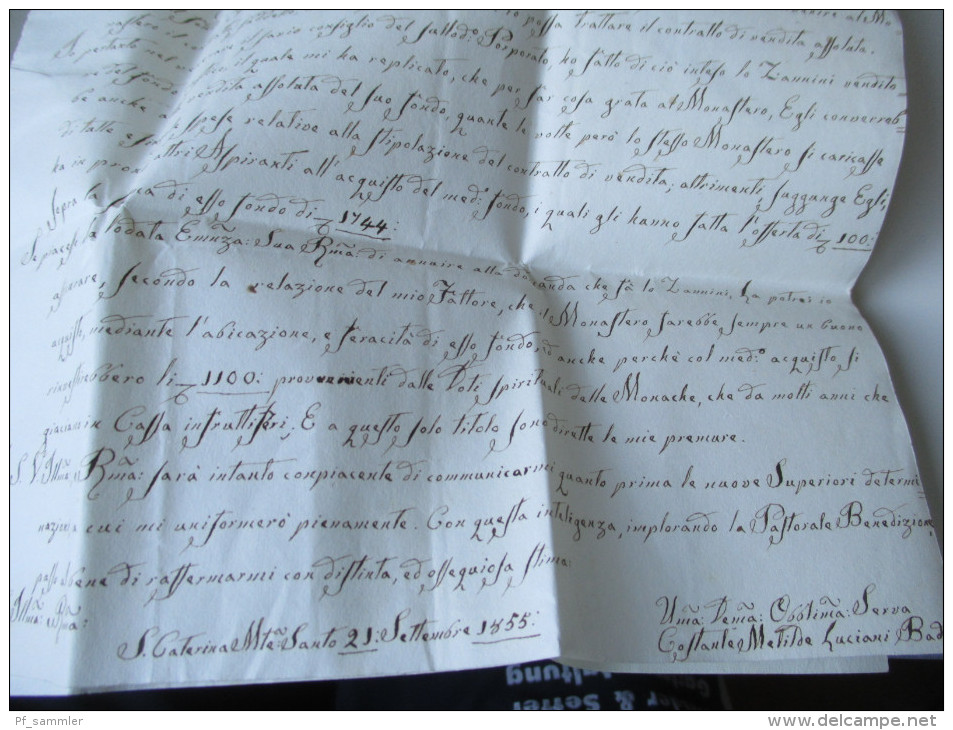 possa trattare il contratto di vendita assoluta.
il savio consiglio del sullod.º Porporato, ho fatto di ciò inteso lo Zannini vendito-
il quale mi ha replicato, che per far cosa grata al Monastero, Egli converreb=
be anche vendita assoluta del suo fondo, quante le volte però lo stesso Monastero si caricasse
di tutte e spese relative alla stipolazione del contratto di vendita; altrimenti, suggunge Egli,
ha in pron altri Aspiranti all'acquisto del med.º fondo, i quali gli hanno fatta l'offerta di 100:
Sopra la ca di esso fondo di 1744:
Se piacesse a lodata Emñza: Sua Rm̃a: di annuire alla domanda che fà lo Zannini, La potrei io
assicurare, secondo la relazione del mio Fattore, che il Monastero farebbe sempre un buono
acquisto, mediante l'abicazione, e feracità di esso fondo, ed anche perchè col med.º acquisto si
rinvestirebbero li 1100: provenienti dalle Doti spirituali delle Monache, che da molti anni che
giacciono in Cassa infruttiferi. E a questo solo titolo sono dirette le mie premure.
S. V. Illm̃a e Rm̃a: sarà intanto conpiacente di communicarmi quanto prima le nuove Superiori determi=
nazioni a cui mi uniformerò pienamente. Con questa inteligenza, implorando la Pastorale Benedizione,
passo al bene di raffermarmi con distinta, ed ossequiosa stima:
Illm̃a: e Rm̃a:
S. Caterina Mte: Santo 21: Settembre 1855:
Um̃a: Dem̃a: Obbm̃a: Serva
Costante Metilde Luciani Bad
& Serrei
altung
Pf_sammler